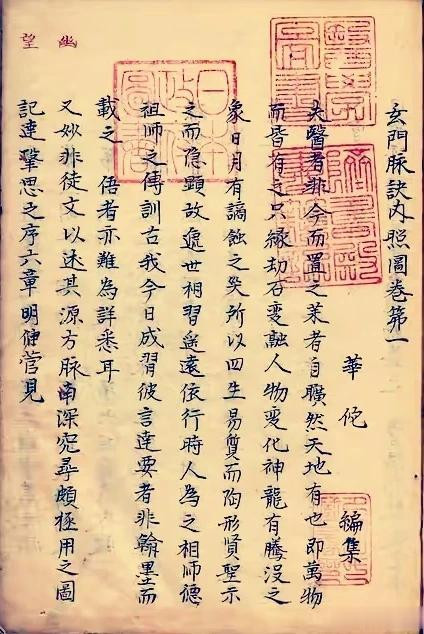 玄門脉訣內照圖卷第一
華佗 編集
夫醫者非今而置之業者自曠然天地有也即萬物
而皆有之只緣劫石变融人物变化神龍有騰没之
象日月有謫蝕之災所以四生易質而陶形賢聖示
之而隱顕故處世相習遠依行時人為之相師德
祖師之傳訓古我今日成習彼言達要者非翰墨而
載之 悟者亦難為詳悉耳
又妙非徒文以述其源方脉幽深究尋頗極用之圖
記達肇思之序六章明伸管見
幽
望
日本政府圖書